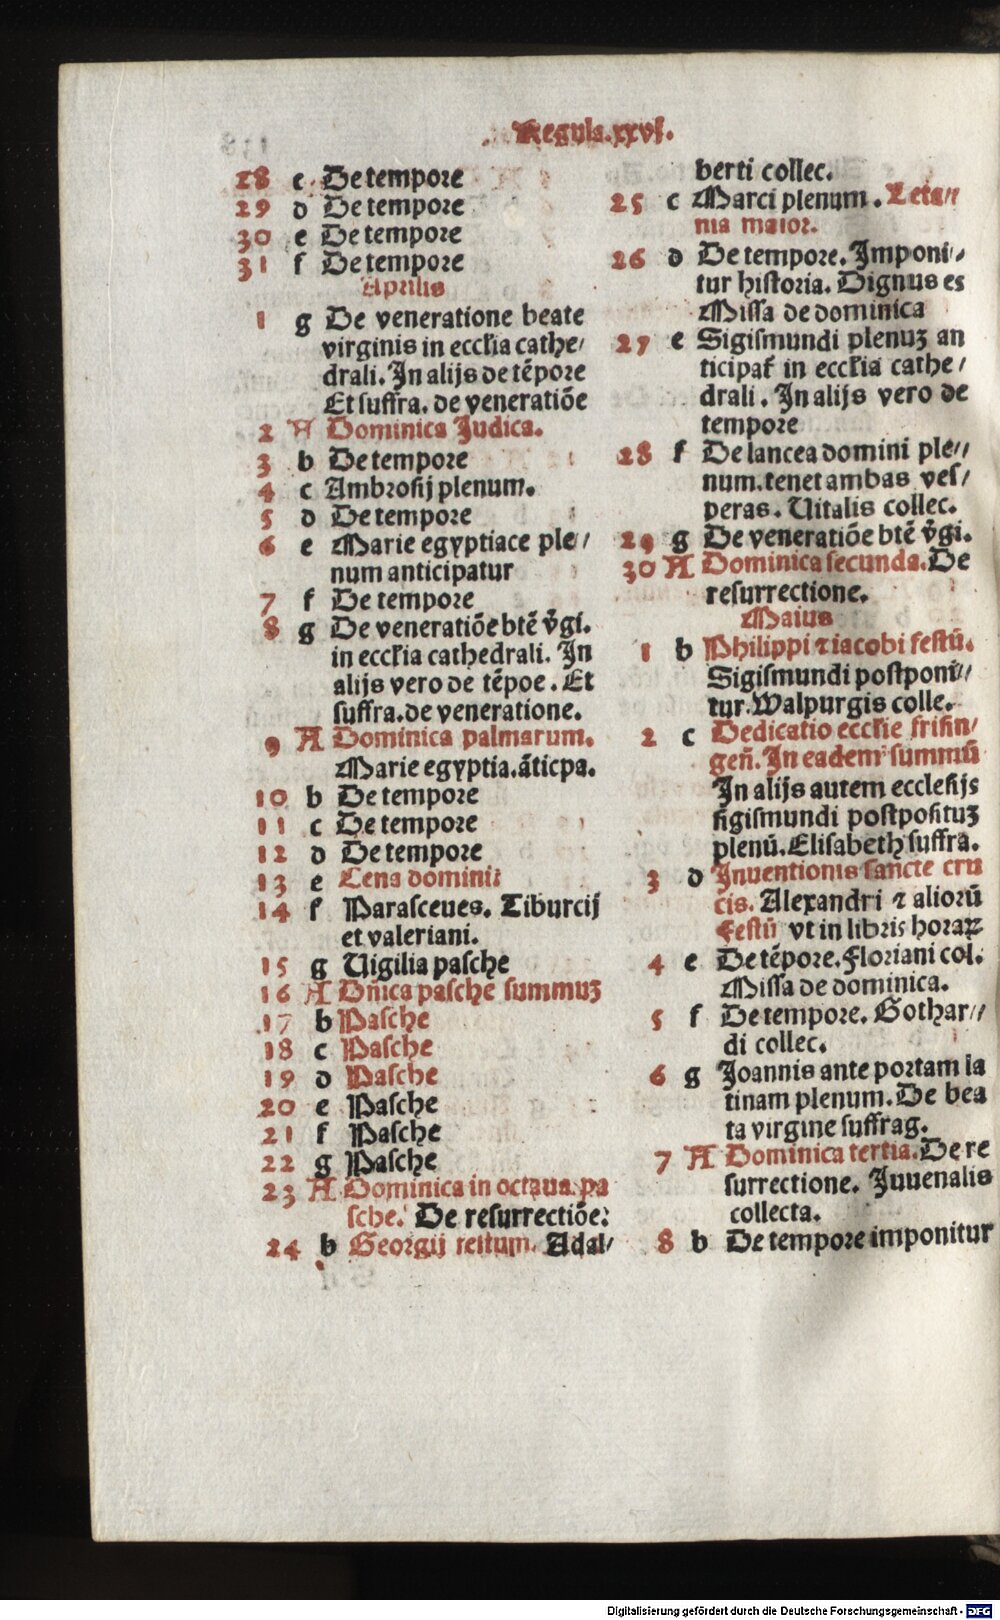 Regula.xxvi.
28 c De tempore
29 d De tempore
30 e De tempore
31 f De tempore
Aprilis
1 g De veneratione beate
virginis in eccłia cathe/
drali. In alijs de tēpore
Et suffra. de veneratiōe
2 A Dominica Judica.
3 b De tempore
4 c Ambrosij plenum.
5 d De tempore
6 e Marie egyptiace ple//
num anticipatur
7 f De tempore
8 g De veneratiōe btē v̄gi.
in eccłia cathedrali. In
alijs vero de tēpoe. Et
suffra. de veneratione.
9 A Dominica palmarum.
Marie egyptia. āticpa.
10 b De tempore
11 c De tempore
12 d De tempore
13 e Cena domini:
14 f Parasceues. Tiburcij
et valeriani.
15 g Uigilia pasche
16 A Dn̄ica pasche summuꝫ
17 b Pasche
18 c Pasche
19 d Pasche
20 e Pasche
21 f Pasche
22 g Pasche
23 A Dominica in octaua pa
sche. De resurrectiōe:
24 b Georgij festum. Adal/
berti collec.
25 c Marci plenum. Leta//
nia maior.
26 d De tempore. Imponi//
tur historia. Dignus es
Missa de dominica
27 e Sigismundi plenuꝫ an
ticipat̄ in eccłia cathe/
drali. In alijs vero de
tempore
28 f De lancea domini ple//
num. tenet ambas ves/
peras. Uitalis collec.
29 g De veneratiōe btē v̄gi.
30 A Dominica secunda. De
resurrectione.
Maius
1 b Philippi ⁊ iacobi festū.
Sigismundi postponi//
tur. Walpurgis colle.
2 c Dedicatio eccłie frisin/
gen̄. In eadem summū
In alijs autem ecclesijs
sigismundi postposituꝫ
plenū. Elisabeth suffra.
3 d Inuentionis sancte cru
cis. Alexandri ⁊ aliorū
Festū vt in libris horaꝝ
4 e De tēpore. Floriani col.
Missa de dominica.
5 f De tempore. Gothar//
di collec.
6 g Joannis ante portam la
tinam plenum. De bea
ta virgine suffrag.
7 A Dominica tertia. De re
surrectione. Juuenalis
collecta.
8 b De tempore imponitur
Digitalisierung gefördert durch die Deutsche Forschungsgemeinschaft - DFG